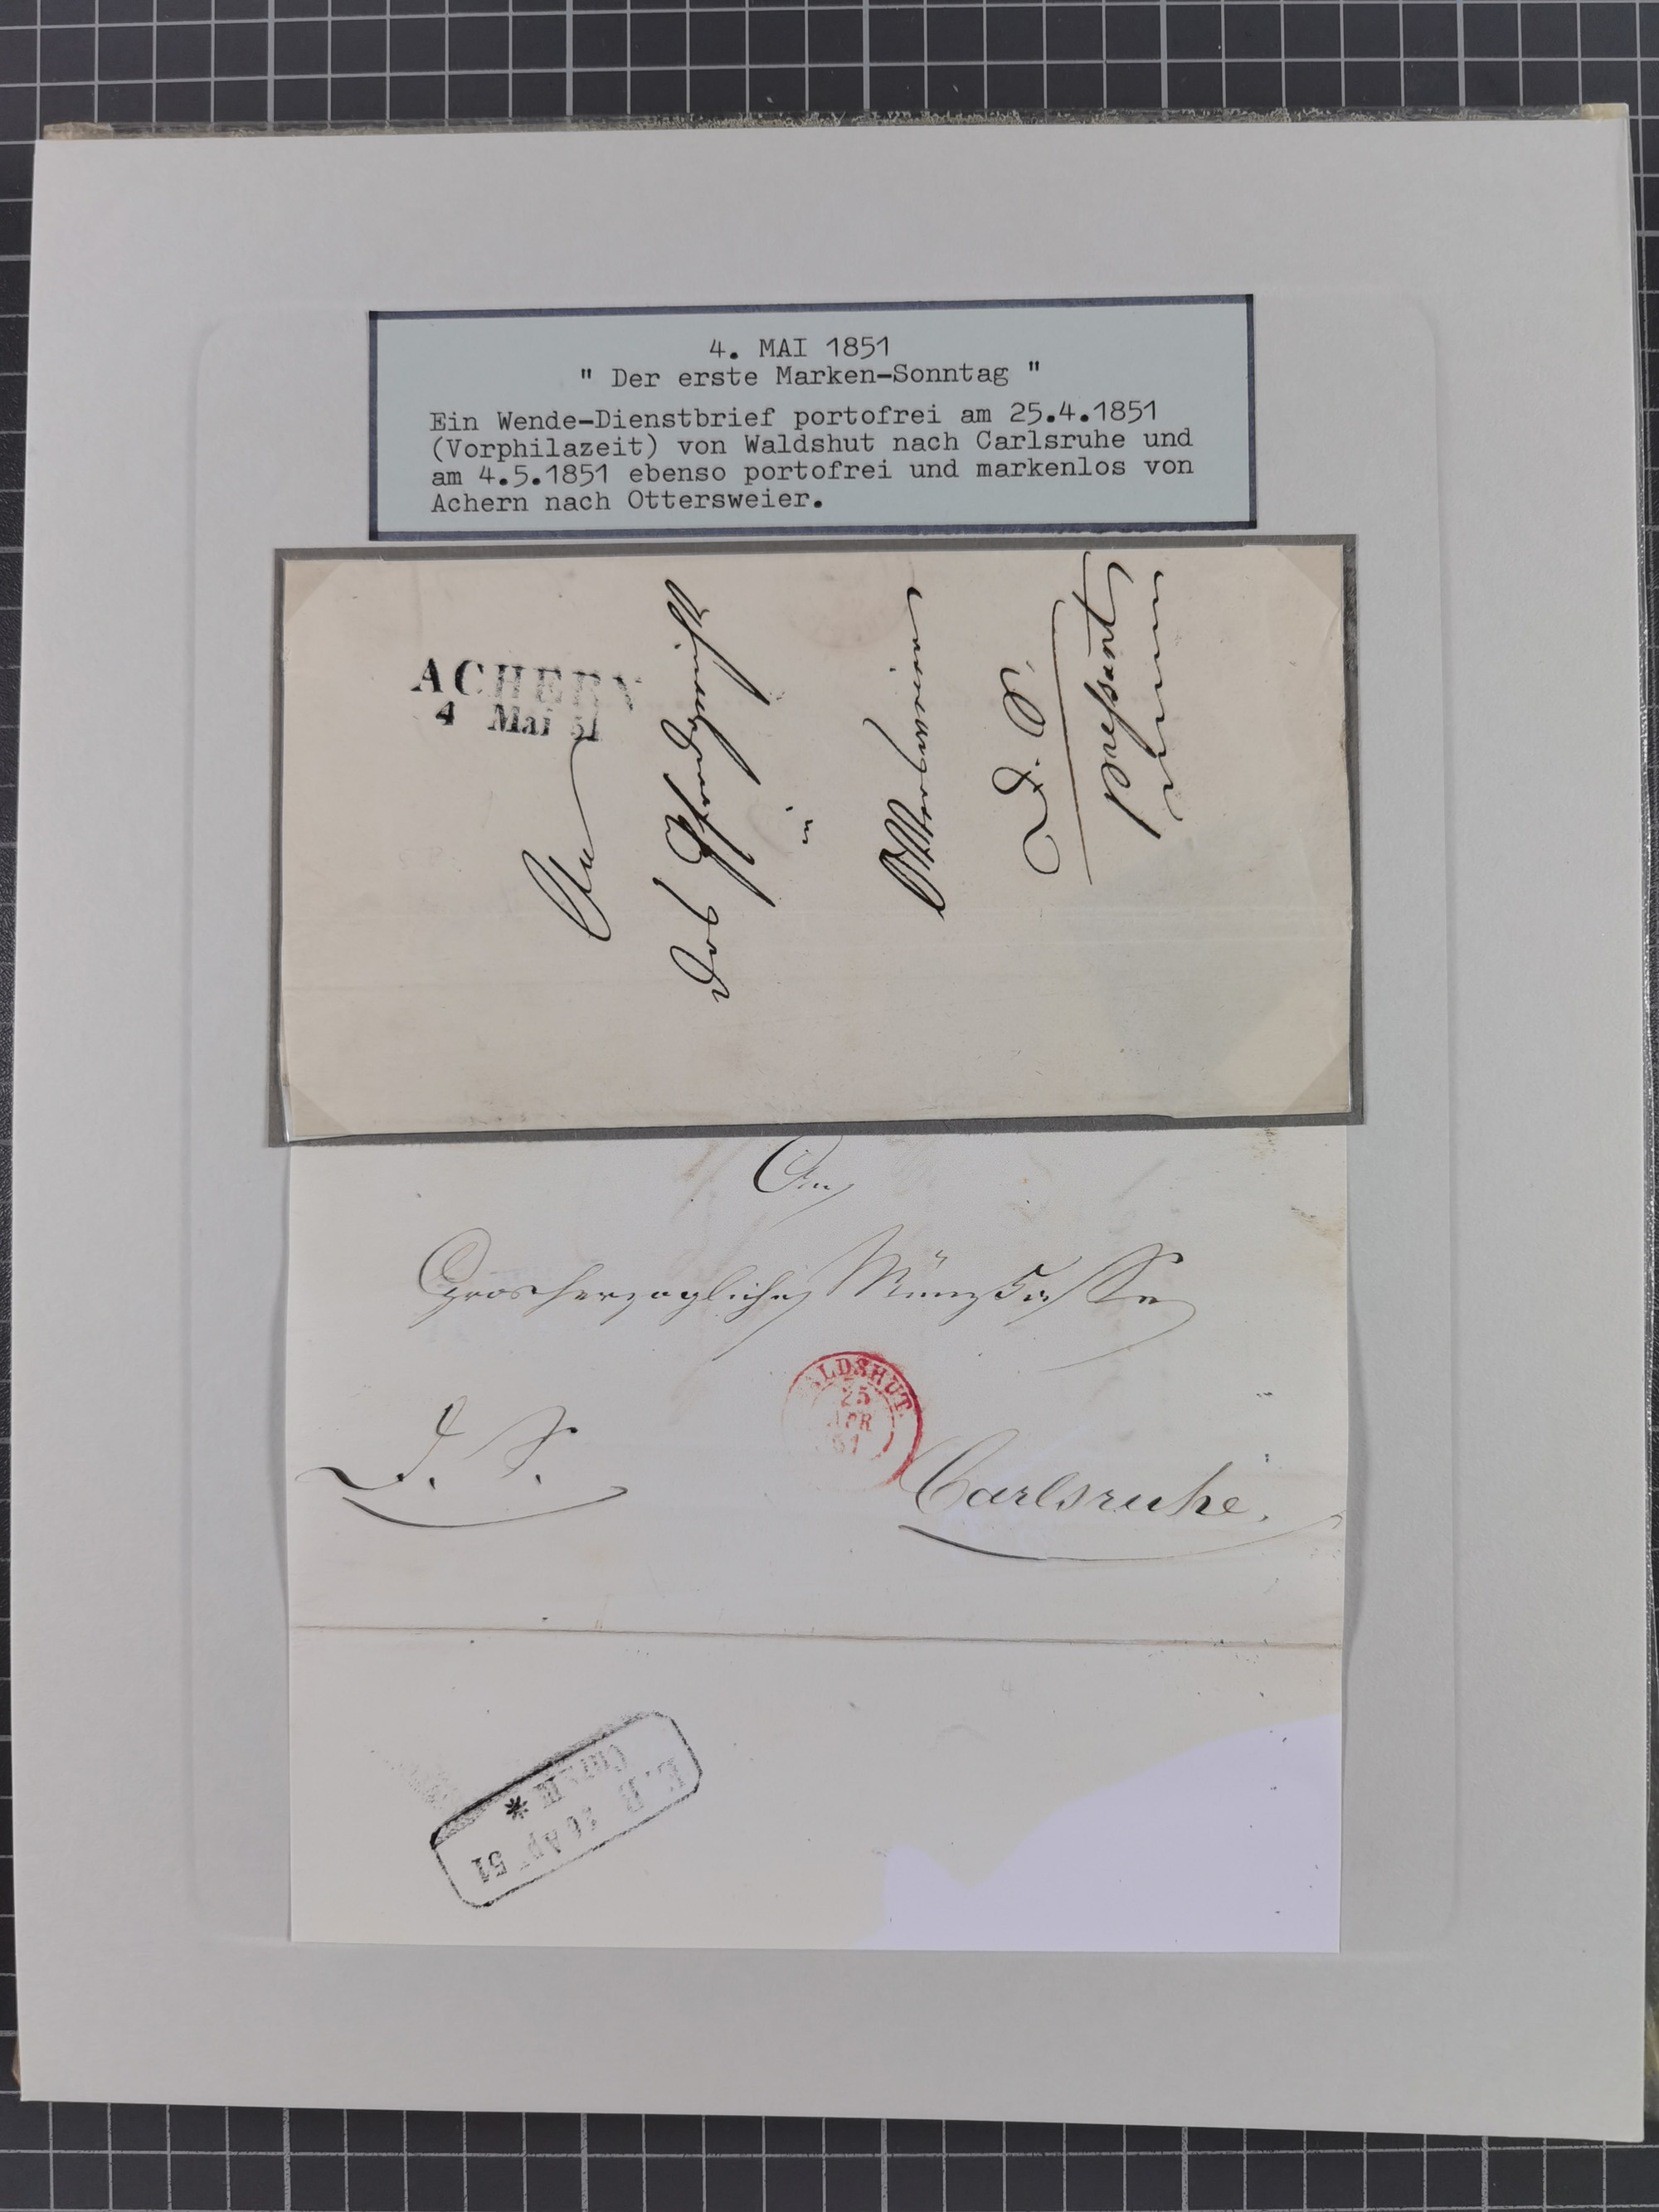 4. MAI 1851
" Der erste Marken-Sonntag "
Ein Wende-Dienstbrief portofrei am 25.4.1851
(Vorphilazeit) von Waldshut nach Carlsruhe und
am 4.5.1851 ebenso portofrei und markenlos von
Achern nach Ottersweier.
ACHERN
4 Mai 51
An
das Pfandgericht
in
Ottersweier
D. S.
pressant
An
Grosherzogliche Münzkasse
WALDSHUT
25
APR
51
D. S.
Carlsruhe.
E.B 26 Ap 51
Curs
*